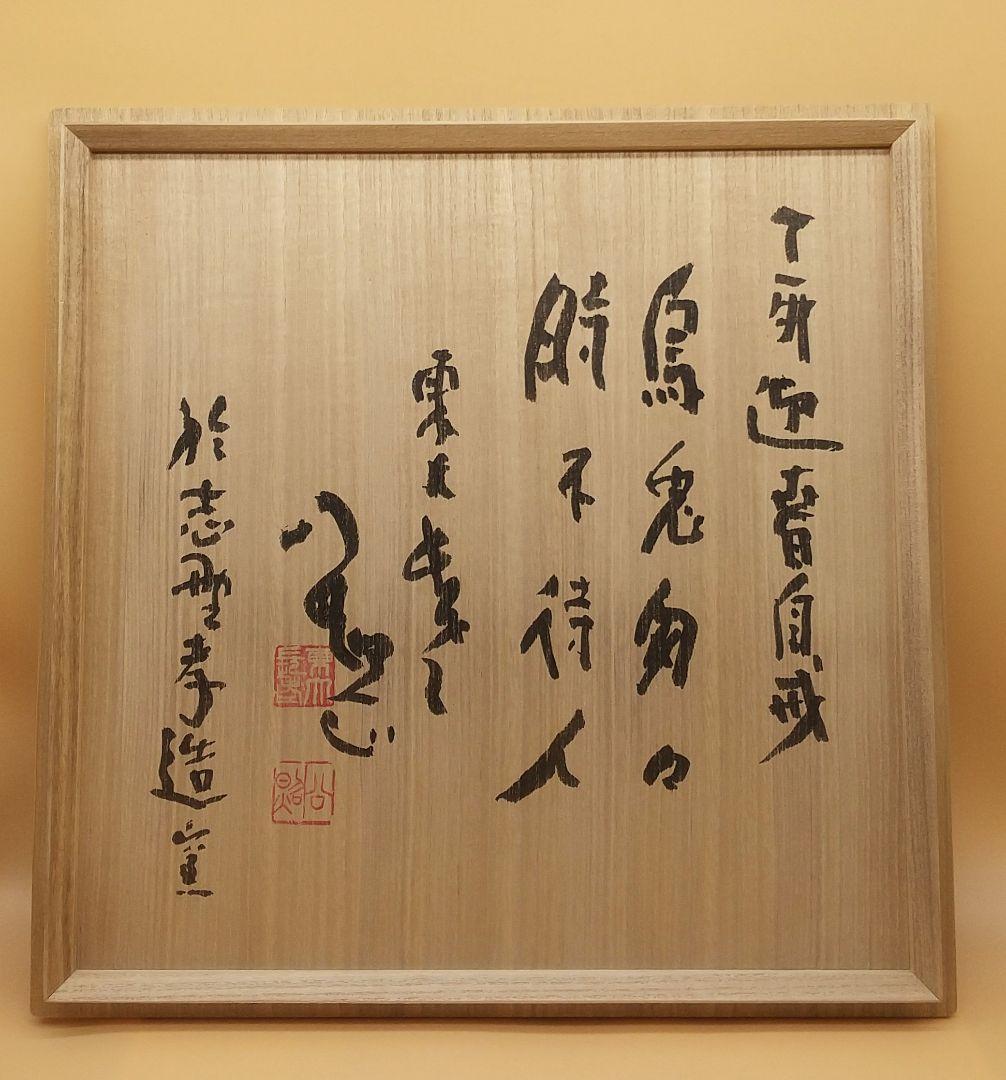 丁亥迎春自戒
烏兎匆々
時不待人
東大
於志野孝造窯